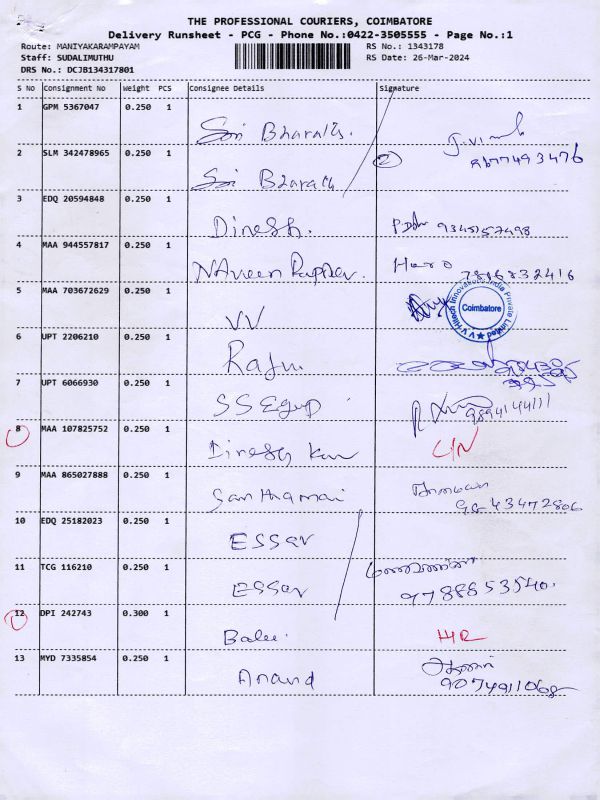 THE PROFESSIONAL COURIERS, COIMBATORE
Delivery Runsheet - PCG - Phone No.:0422-3505555 - Page No.:1
Route: MANIYAKARAMPAYAM RS No.: 1343178
Staff: SUDALIMUTHU RS Date: 26-Mar-2024
DRS No.: DCJB134317801
S No Consignment No Weight PCS Consignee Details Signature
1 GPM 5367047 0.250 1 Sri Bharath.
2 SLM 342478965 0.250 1 Sri Bharath 2
3 EDQ 20594848 0.250 1 Dinesh.
4 MAA 944557817 0.250 1 Naveen 7816832416
5 MAA 703672629 0.250 1 VV
V V Hitech Innovations India Private Limited Coimbatore
6 UPT 2206210 0.250 1
7 UPT 6066930 0.250 1 9894144111
8 MAA 107825752 0.250 1 Dinesh
9 MAA 865027888 0.250 1 Santhamani 9843472806
10 EDQ 25182023 0.250 1 ESSAR
11 TCG 116210 0.250 1 ESSAR 9788853540.
12 DPI 242743 0.300 1
13 MYD 7335854 0.250 1 Anand 9074911068